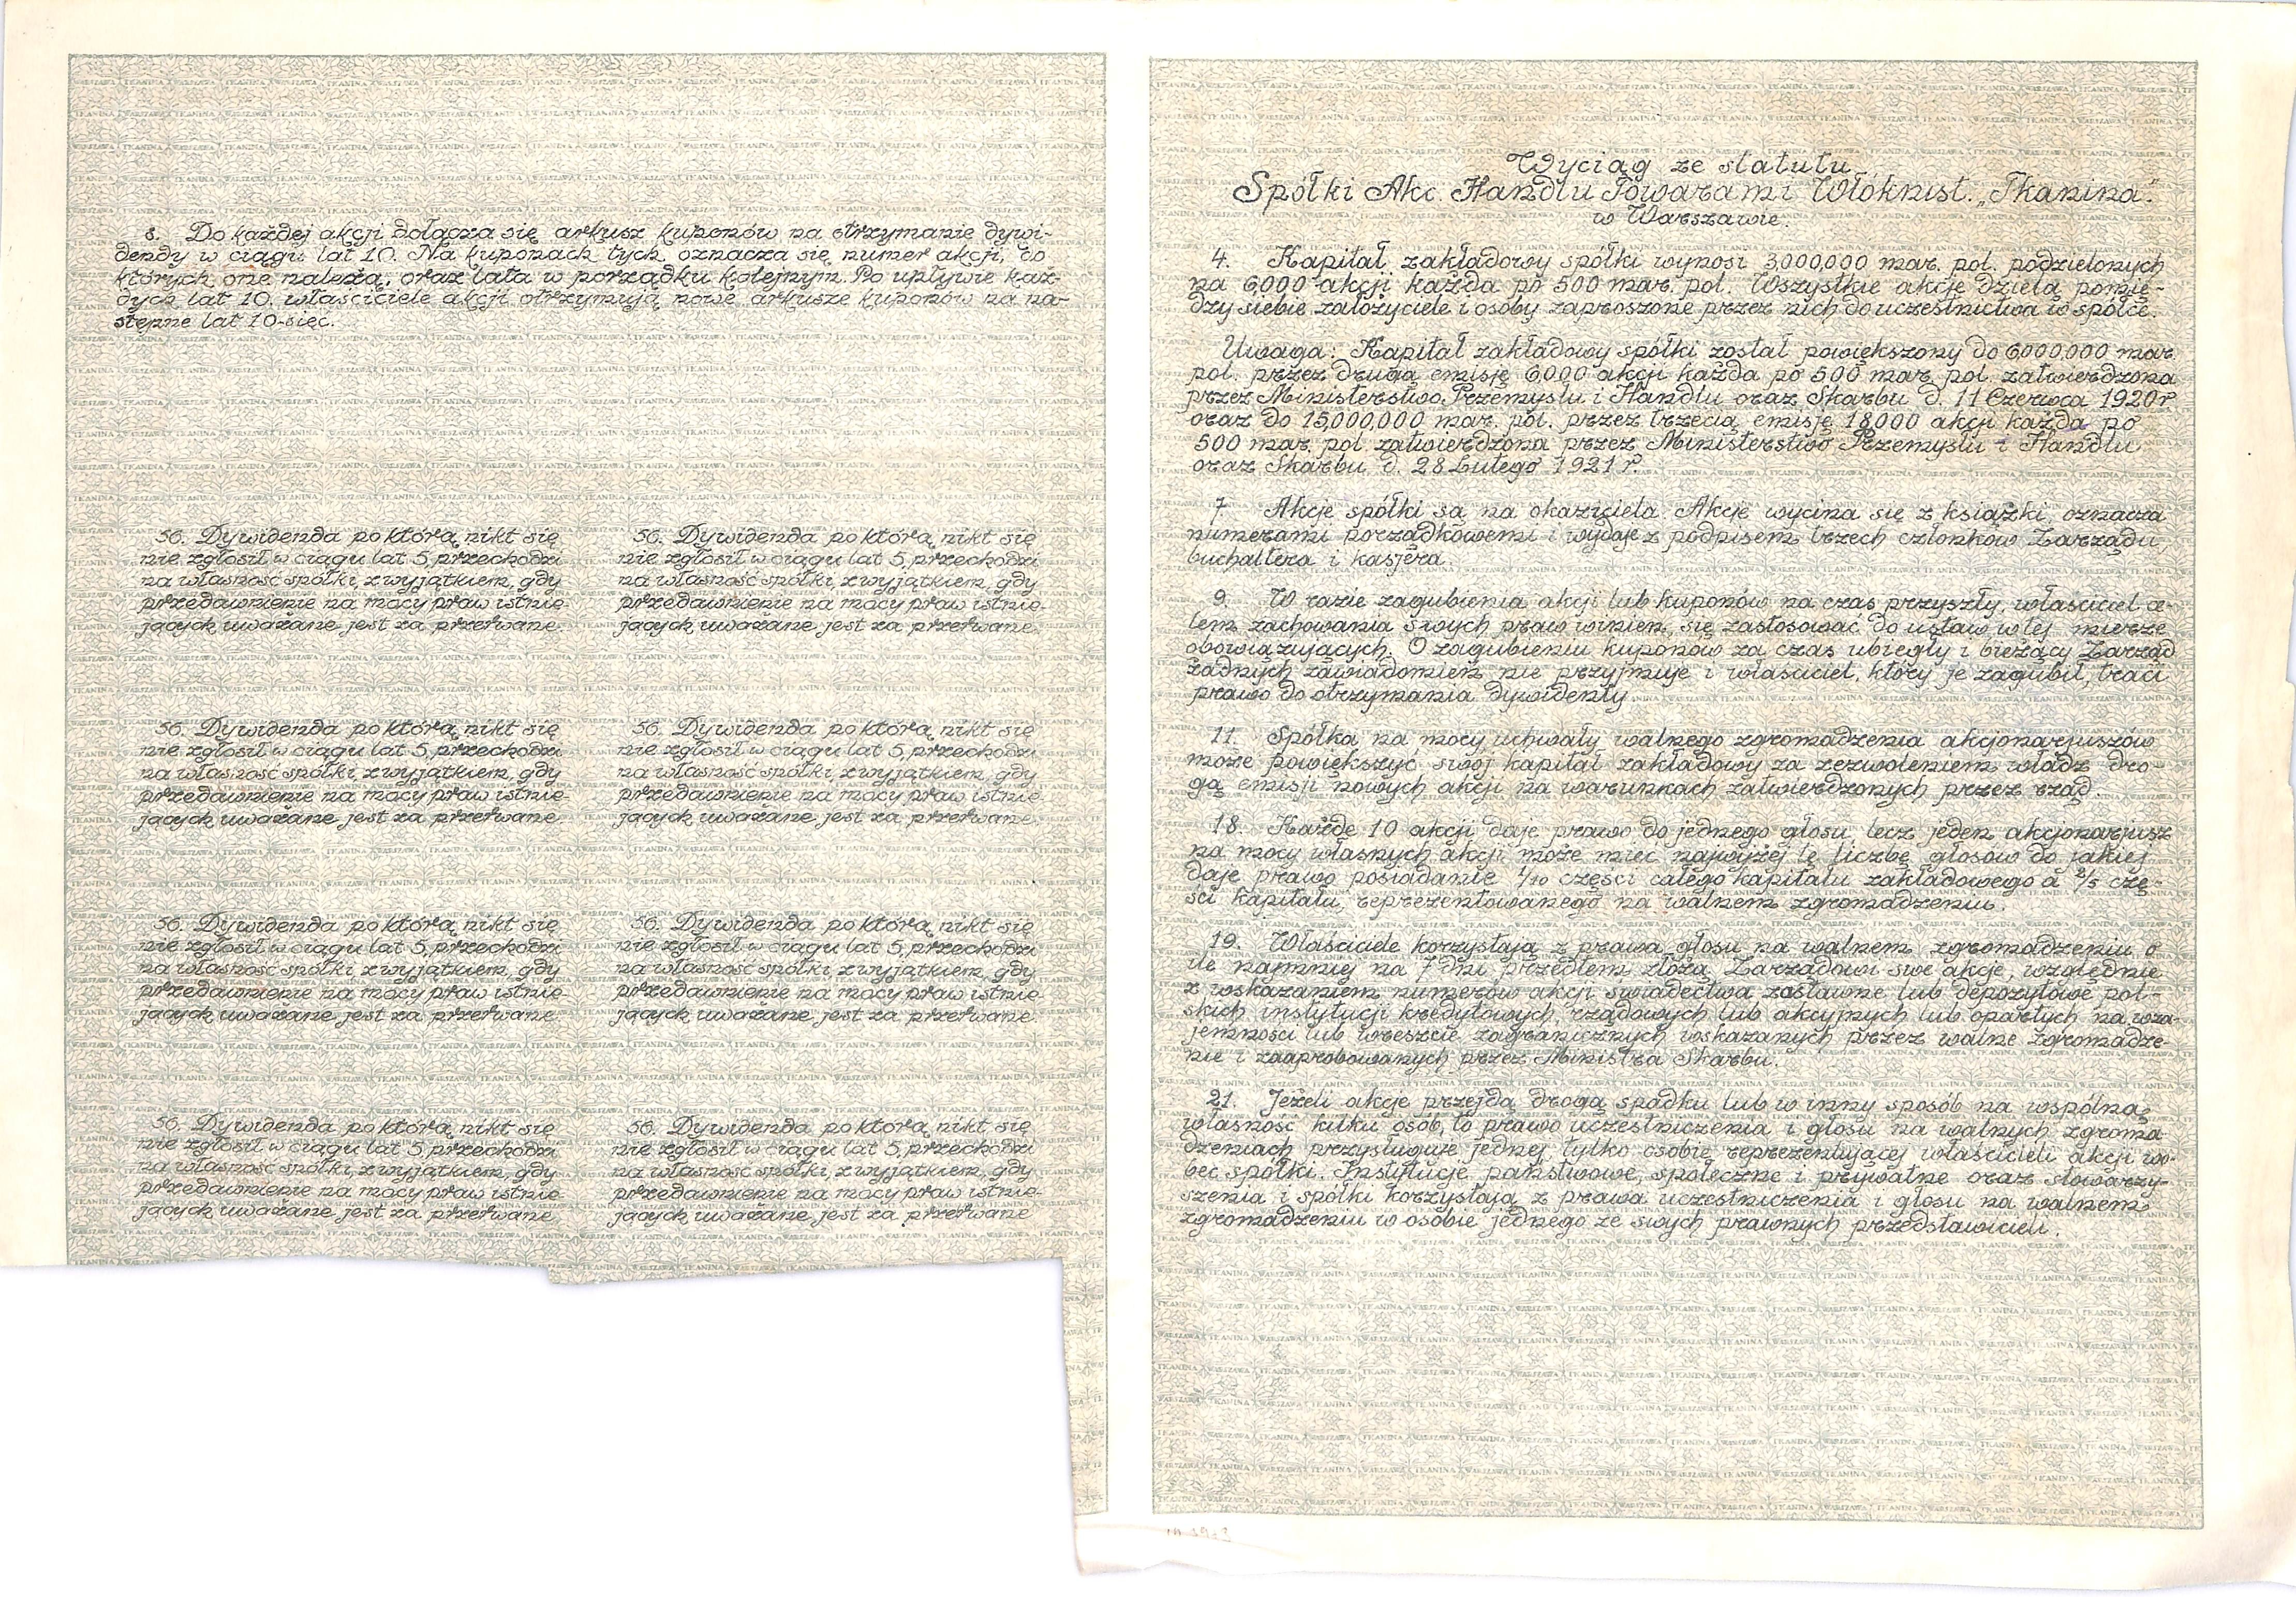 8. Do każdej akcji dołącza się arkusz kuponów na otrzymanie dywi-
dendy w ciągu lat 10. Na kuponach tych oznacza się numer akcji, do
których one należą, oraz lata w porządku kolejnym. Po upływie każ-
dych lat 10. właściciele akcji otrzymują nowe arkusze kuponów na na-
stępne lat 10-sięc.
56. Dywidenda po którą nikt się
nie zgłosił w ciągu lat 5, przechodzi
na własność spółki, z wyjątkiem, gdy
przedawnienie na mocy praw istnie-
jących uważane jest za przerwane.
56. Dywidenda po którą nikt się
nie zgłosił w ciągu lat 5, przechodzi
na własność spółki, z wyjątkiem, gdy
przedawnienie na mocy praw istnie-
jących uważane jest za przerwane.
56. Dywidenda po którą nikt się
nie zgłosił w ciągu lat 5, przechodzi
na własność spółki, z wyjątkiem, gdy
przedawnienie na mocy praw istnie-
jących uważane jest za przerwane.
56. Dywidenda po którą nikt się
nie zgłosił w ciągu lat 5, przechodzi
na własność spółki, z wyjątkiem, gdy
przedawnienie na mocy praw istnie-
jących uważane jest za przerwane.
56. Dywidenda po którą nikt się
nie zgłosił w ciągu lat 5, przechodzi
na własność spółki, z wyjątkiem, gdy
przedawnienie na mocy praw istnie-
jących uważane jest za przerwane.
56. Dywidenda po którą nikt się
nie zgłosił w ciągu lat 5, przechodzi
na własność spółki, z wyjątkiem, gdy
przedawnienie na mocy praw istnie-
jących uważane jest za przerwane.
56. Dywidenda po którą nikt się
nie zgłosił w ciągu lat 5, przechodzi
na własność spółki, z wyjątkiem, gdy
przedawnienie na mocy praw istnie-
jących uważane jest za przerwane.
56. Dywidenda po którą nikt się
nie zgłosił w ciągu lat 5, przechodzi
na własność spółki, z wyjątkiem, gdy
przedawnienie na mocy praw istnie-
jących uważane jest za przerwane.
Wyciąg ze statutu
Spółki Akc. Handlu Towarami Włóknist. „Tkanina"
w Warszawie.
4. Kapitał zakładowy spółki wynosi 3,000,000 mar. pol. podzielonych
na 6,000 akcji każda po 500 mar. pol. Wszystkie akcje dzielą pomię-
dzy siebie założyciele i osoby zaproszone przez nich do uczestnictwa w spółce.
Uwaga: Kapitał zakładowy spółki został powiększony do 6,000,000 mar.
pol. przez drugą emisję 6,000 akcji każda po 500 mar. pol. zatwierdzoną
przez Ministerstwo Przemysłu i Handlu oraz Skarbu d. 11 Czerwca 1920 r.
oraz do 15,000,000 mar. pol. przez trzecią emisję 18,000 akcji każda po
500 mar. pol. zatwierdzoną przez Ministerstwo Przemysłu i Handlu
oraz Skarbu d. 28 Lutego 1921 r.
7. Akcje spółki są na okaziciela. Akcje wycina się z książki, oznacza
numerami porządkowemi i wydaje z podpisem trzech członków Zarządu,
buchaltera i kasjera.
9. W razie zagubienia akcji lub kuponów na czas przyszły, właściciel ce-
lem zachowania swych praw winien, się zastosować do ustaw w tej mierze
obowiązujących. O zagubieniu kuponów za czas ubiegły i bieżący Zarząd
żadnych zawiadomień nie przyjmuje i właściciel, który je zagubił, traci
prawo do otrzymania dywidendy.
11. Spółka na mocy uchwały walnego zgromadzenia akcjonarjuszów
może powiększyć swój kapitał zakładowy za zezwoleniem władz dro-
gą emisji nowych akcji na warunkach zatwierdzonych przez rząd.
18. Każde 10 akcji daje prawo do jednego głosu, lecz jeden akcjonarjusz
na mocy własnych akcji może mieć najwyżej tę liczbę głosów do jakiej
daje prawo posiadanie 1/10 części całego kapitału zakładowego a 2/5 czę-
ści kapitału, reprezentowanego na walnem zgromadzeniu.
19. Właściciele korzystają z prawa głosu na walnem zgromadzeniu o
ile najmniej na 7 dni przedtem złożą Zarządowi swe akcje, względnie
z wskazaniem numerów akcji świadectwa zastawne lub depozytowe pol-
skich instytucji kredytowych, rządowych lub akcyjnych lub opartych na wza-
jemności lub wreszcie zagranicznych wskazanych przez walne zgromadze-
nie i zaaprobowanych przez Ministra Skarbu.
21. Jeżeli akcje przejdą drogą spadku lub w inny sposób na wspólną
własność kilku osób, to prawo uczestniczenia i głosu na walnych zgroma
dzeniach przysługuje jednej, tylko osobie reprezentującej właścicieli akcji wo-
bec spółki. Instytucje państwowe, społeczne i prywatne oraz stowarzy-
szenia i spółki korzystają z prawa uczestniczenia i głosu na walnem
zgromadzeniu w osobie jednego ze swych prawnych przedstawicieli.